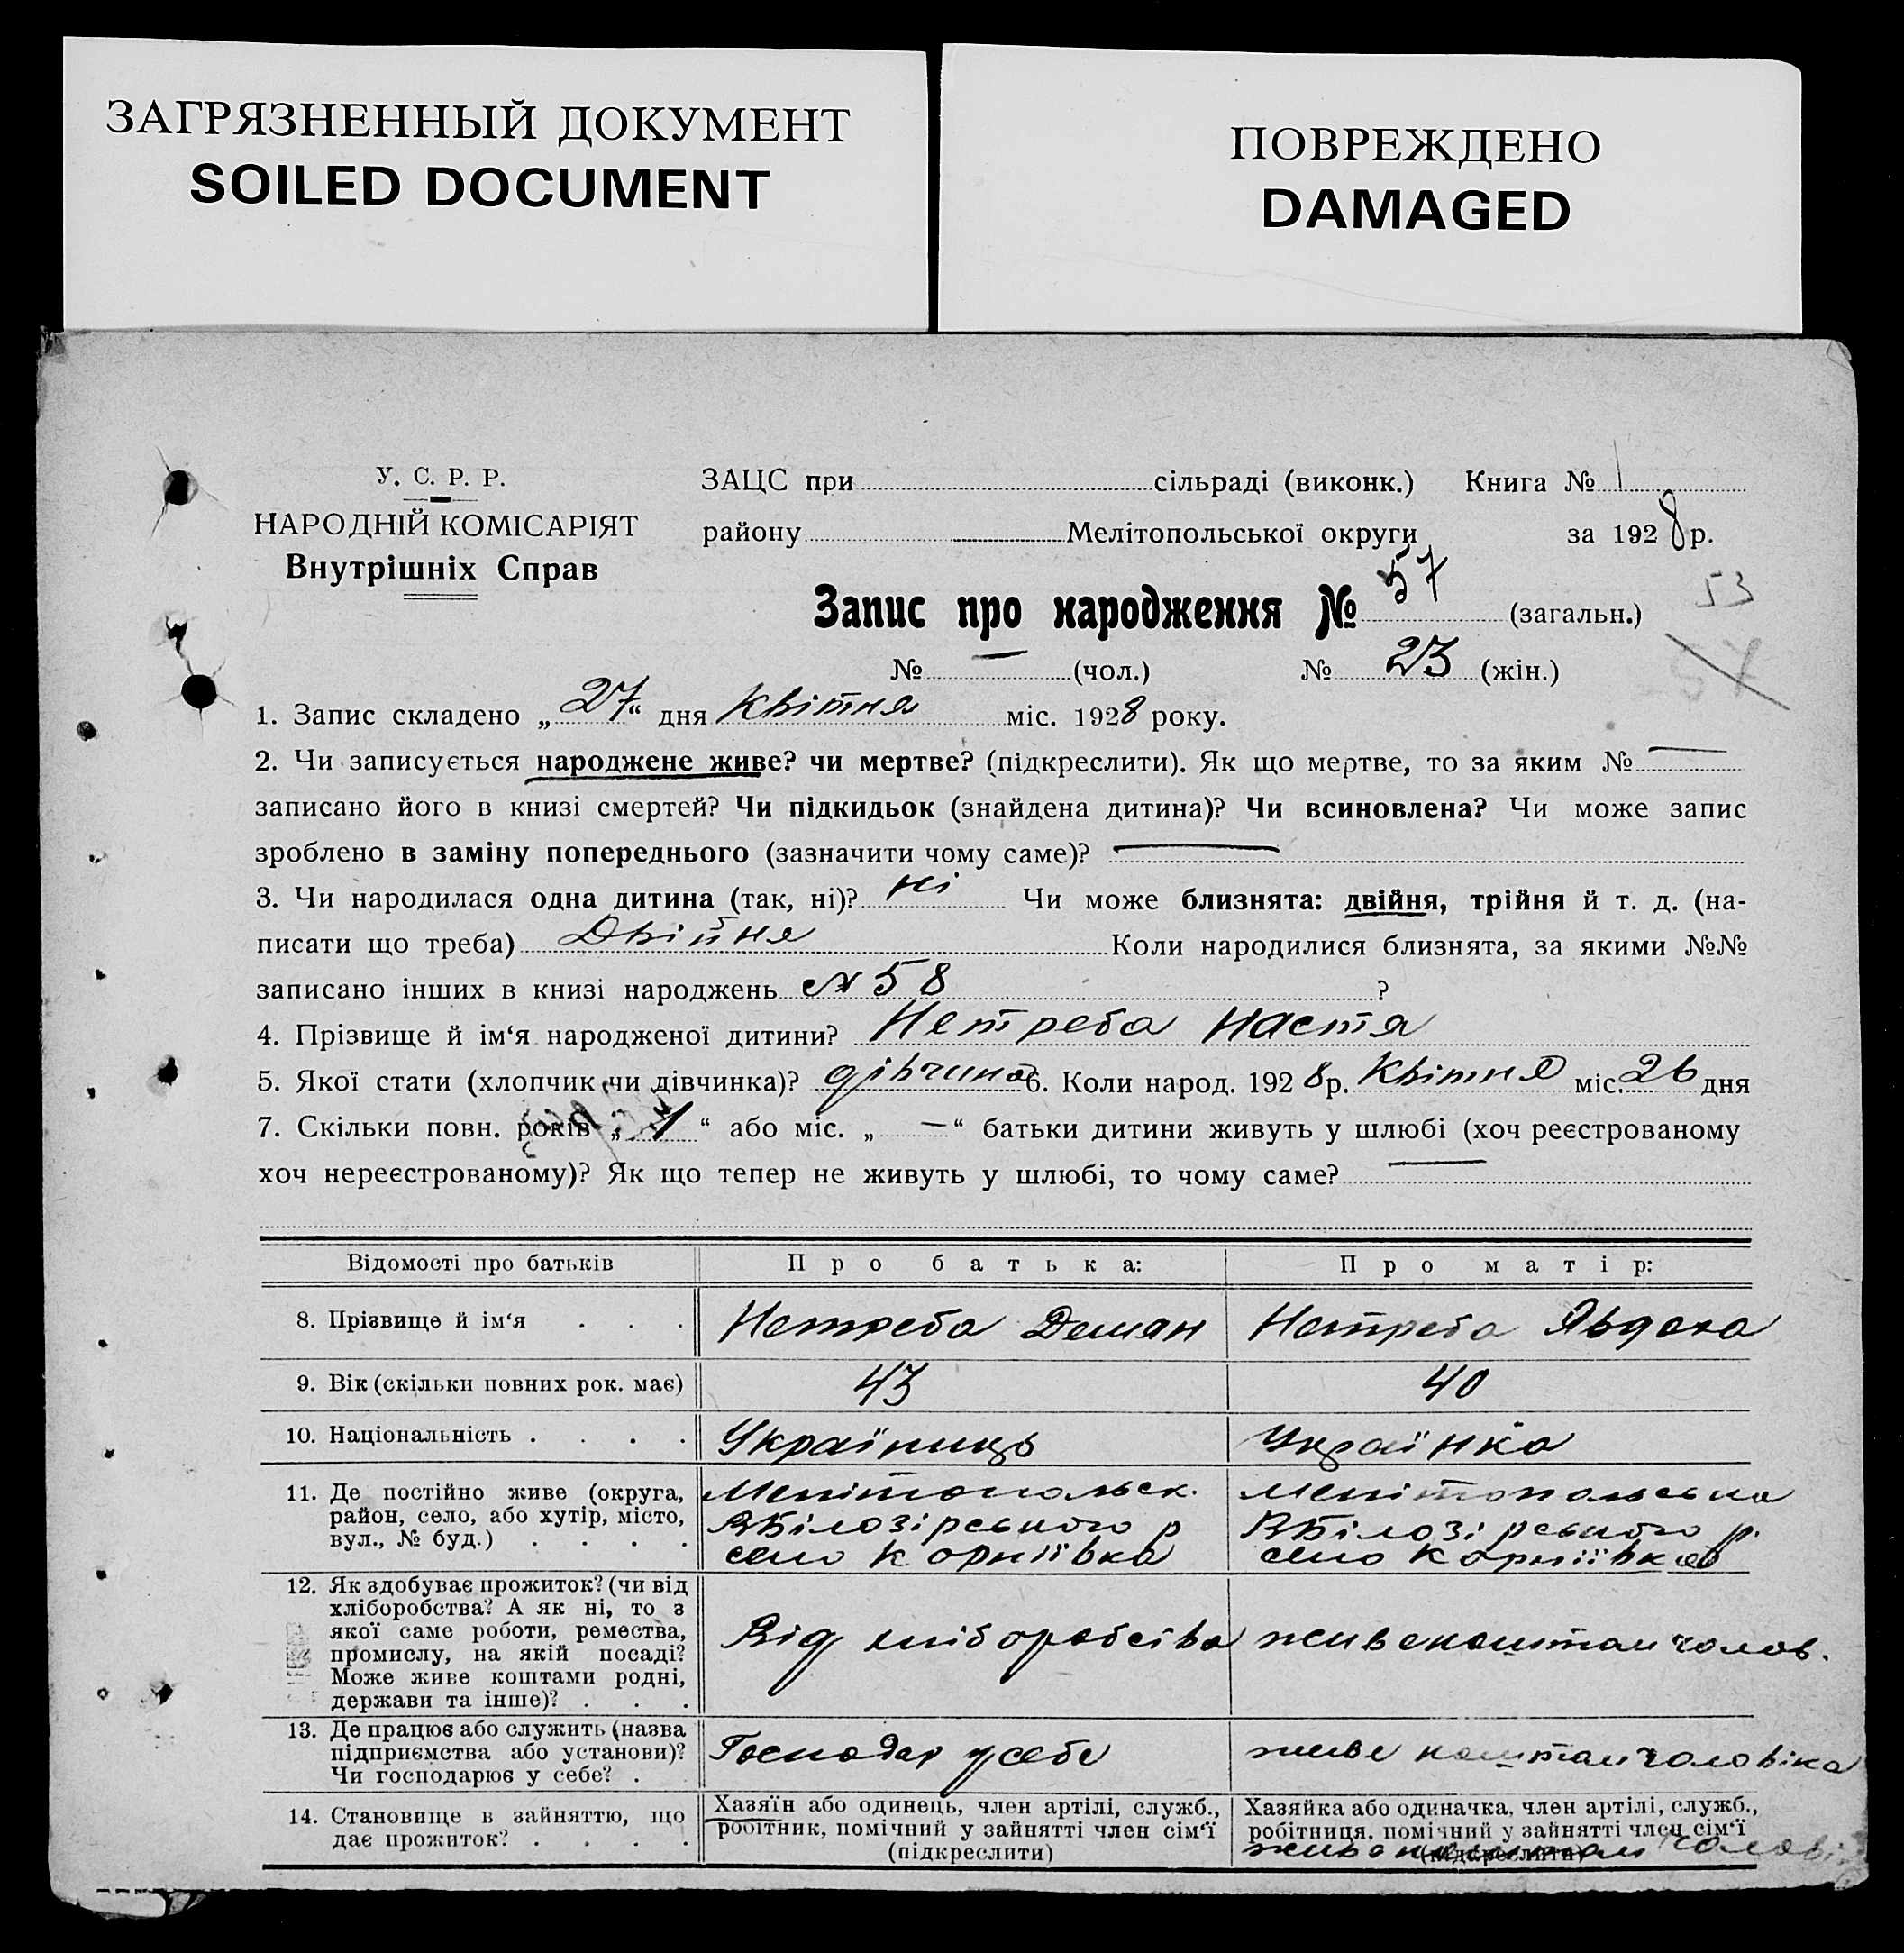 ЗАГРЯЗНЕННЫЙ ДОКУМЕНТ
SOILED DOCUMENT
ПОВРЕЖДЕНО
DAMAGED
У. С. Р. Р.
НАРОДНІЙ КОМІСАРІЯТ
Внутрішніх Справ
ЗАЦС при сільраді (виконк.) Книга № 1
району Мелітопольської округи за 1928 р.
Запис про народження № 57 (загальн.)
53
57
№ — (чол.) № 23 (жін.)
1. Запис складено „27“ дня Квітня міс. 1928 року.
2. Чи записується народжене живе? чи мертве? (підкреслити). Як що мертве, то за яким № —
записано його в книзі смертей? Чи підкидьок (знайдена дитина)? Чи всиновлена? Чи може запис
зроблено в заміну попереднього (зазначити чому саме)? —
3. Чи народилася одна дитина (так, ні)? ні Чи може близнята: двійня, трійня й т. д. (на-
писати що треба) Двійня Коли народилися близнята, за якими №№
записано інших в книзі народжень № 58 ?
4. Прізвище й ім‘я народженої дитини? Нетреба Настя
5. Якої стати (хлопчик чи дівчинка)? дівчина 6. Коли народ. 1928 р. Квітня міс. 26 дня
7. Скільки повн. років „ “ або міс. „ — “ батьки дитини живуть у шлюбі (хоч реєстрованому
хоч нереєстрованому)? Як що тепер не живуть у шлюбі, то чому саме? —
Відомості про батьків Про батька: Про матір:
8. Прізвище й ім‘я . . . Нетреба Демян Нетреба Явдоха
9. Вік (скільки повних рок. має) 43 40
10. Національність . . . . Україниць Українка
11. Де постійно живе (округа,
район, село, або хутір, місто,
вул., № буд.) . . . .
Мелітопольск.
ВБілозірського р
село Корніївка
Мелітопольська
ВБілозірського р.
село Корніївка
12. Як здобуває прожиток? (чи від
хліборобства? А як ні, то з
якої саме роботи, ремества,
промислу, на якій посаді?
Може живе коштами родні,
держави та інше)? . . .
Від хліборобства
живе коштам чолов.
13. Де працює або служить (назва
підприємства або установи)?
Чи господарює у себе? .
Господар у себе
живе коштам чоловіка
14. Становище в зайняттю, що
дає прожиток? . . . .
Хазяїн або одинець, член артілі, служб.,
робітник, помічний у зайнятті член сім‘ї
(підкреслити)
Хазяйка або одиначка, член артілі, служб.,
робітниця, помічний у зайнятті член сім‘ї
(підкреслити)
живе коштам чолові